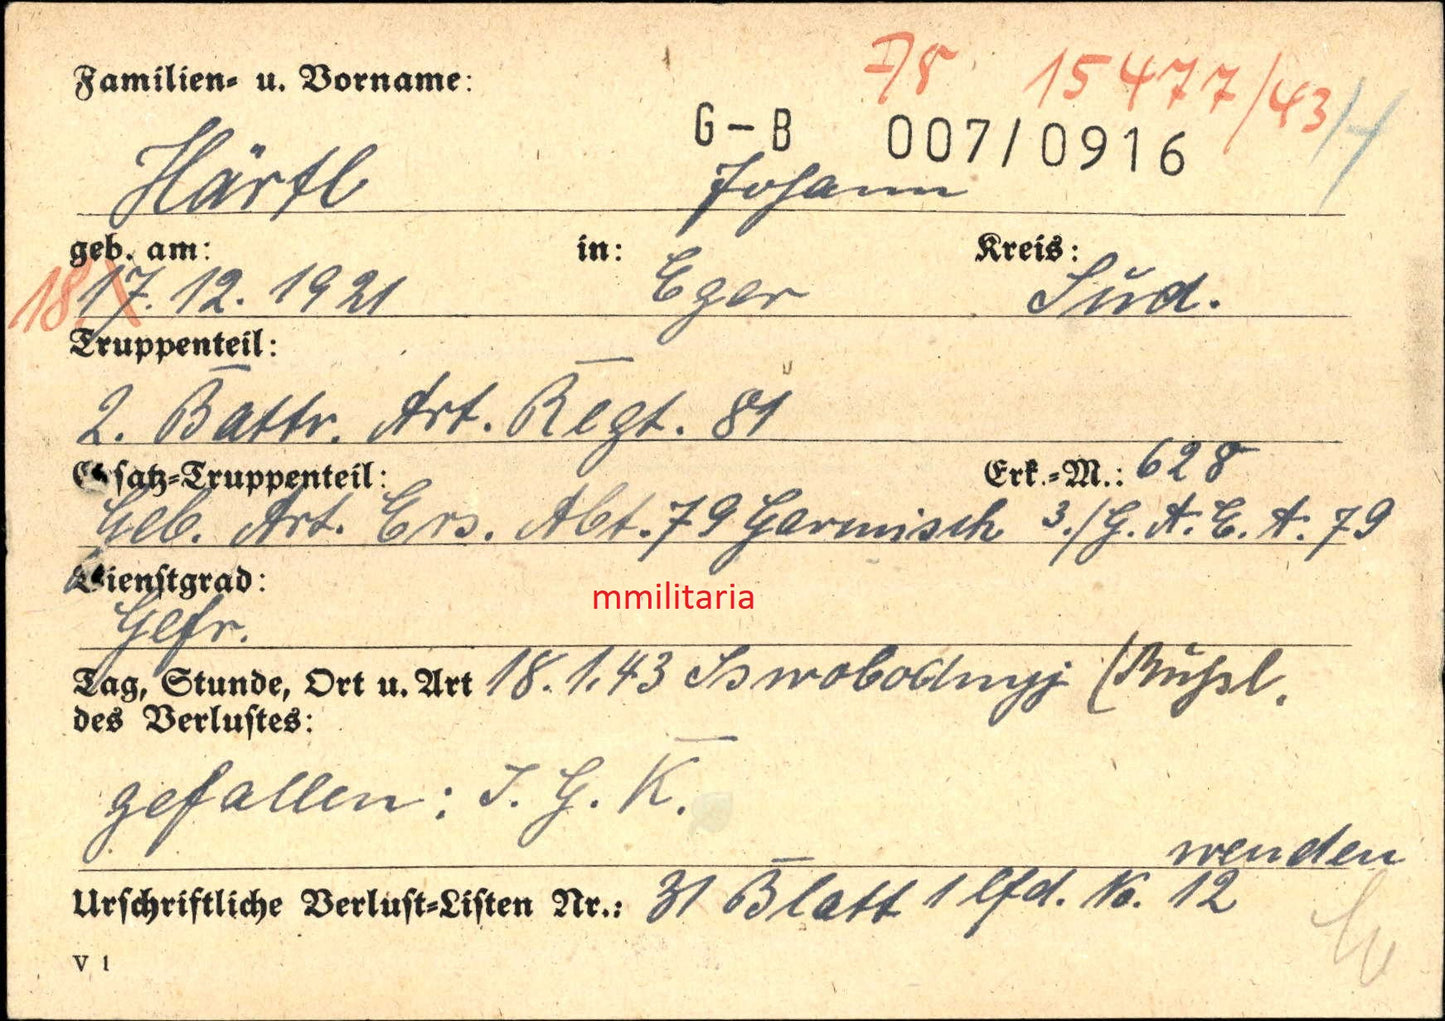 Familien- u. Vorname:
15477/43
G-B 007/0916
Härtl Johann
geb. am: in: Kreis:
18. 17. 12. 1921 Eger Sud.
Truppenteil:
2. Battr. Art. Regt. 81
Ersatz-Truppenteil: Erk.-M.: 628
Geb. Art. Ers. Abt. 79 Garmisch 3./G. A. E. A. 79
Dienstgrad:
Gefr.
mmilitaria
Tag, Stunde, Ort u. Art 18.1.43 (Rußl.
des Verlustes:
gefallen: I. G. K.
wenden
Urschriftliche Verlust-Listen Nr.: 31 Blatt 1 lfd. No. 12
V 1